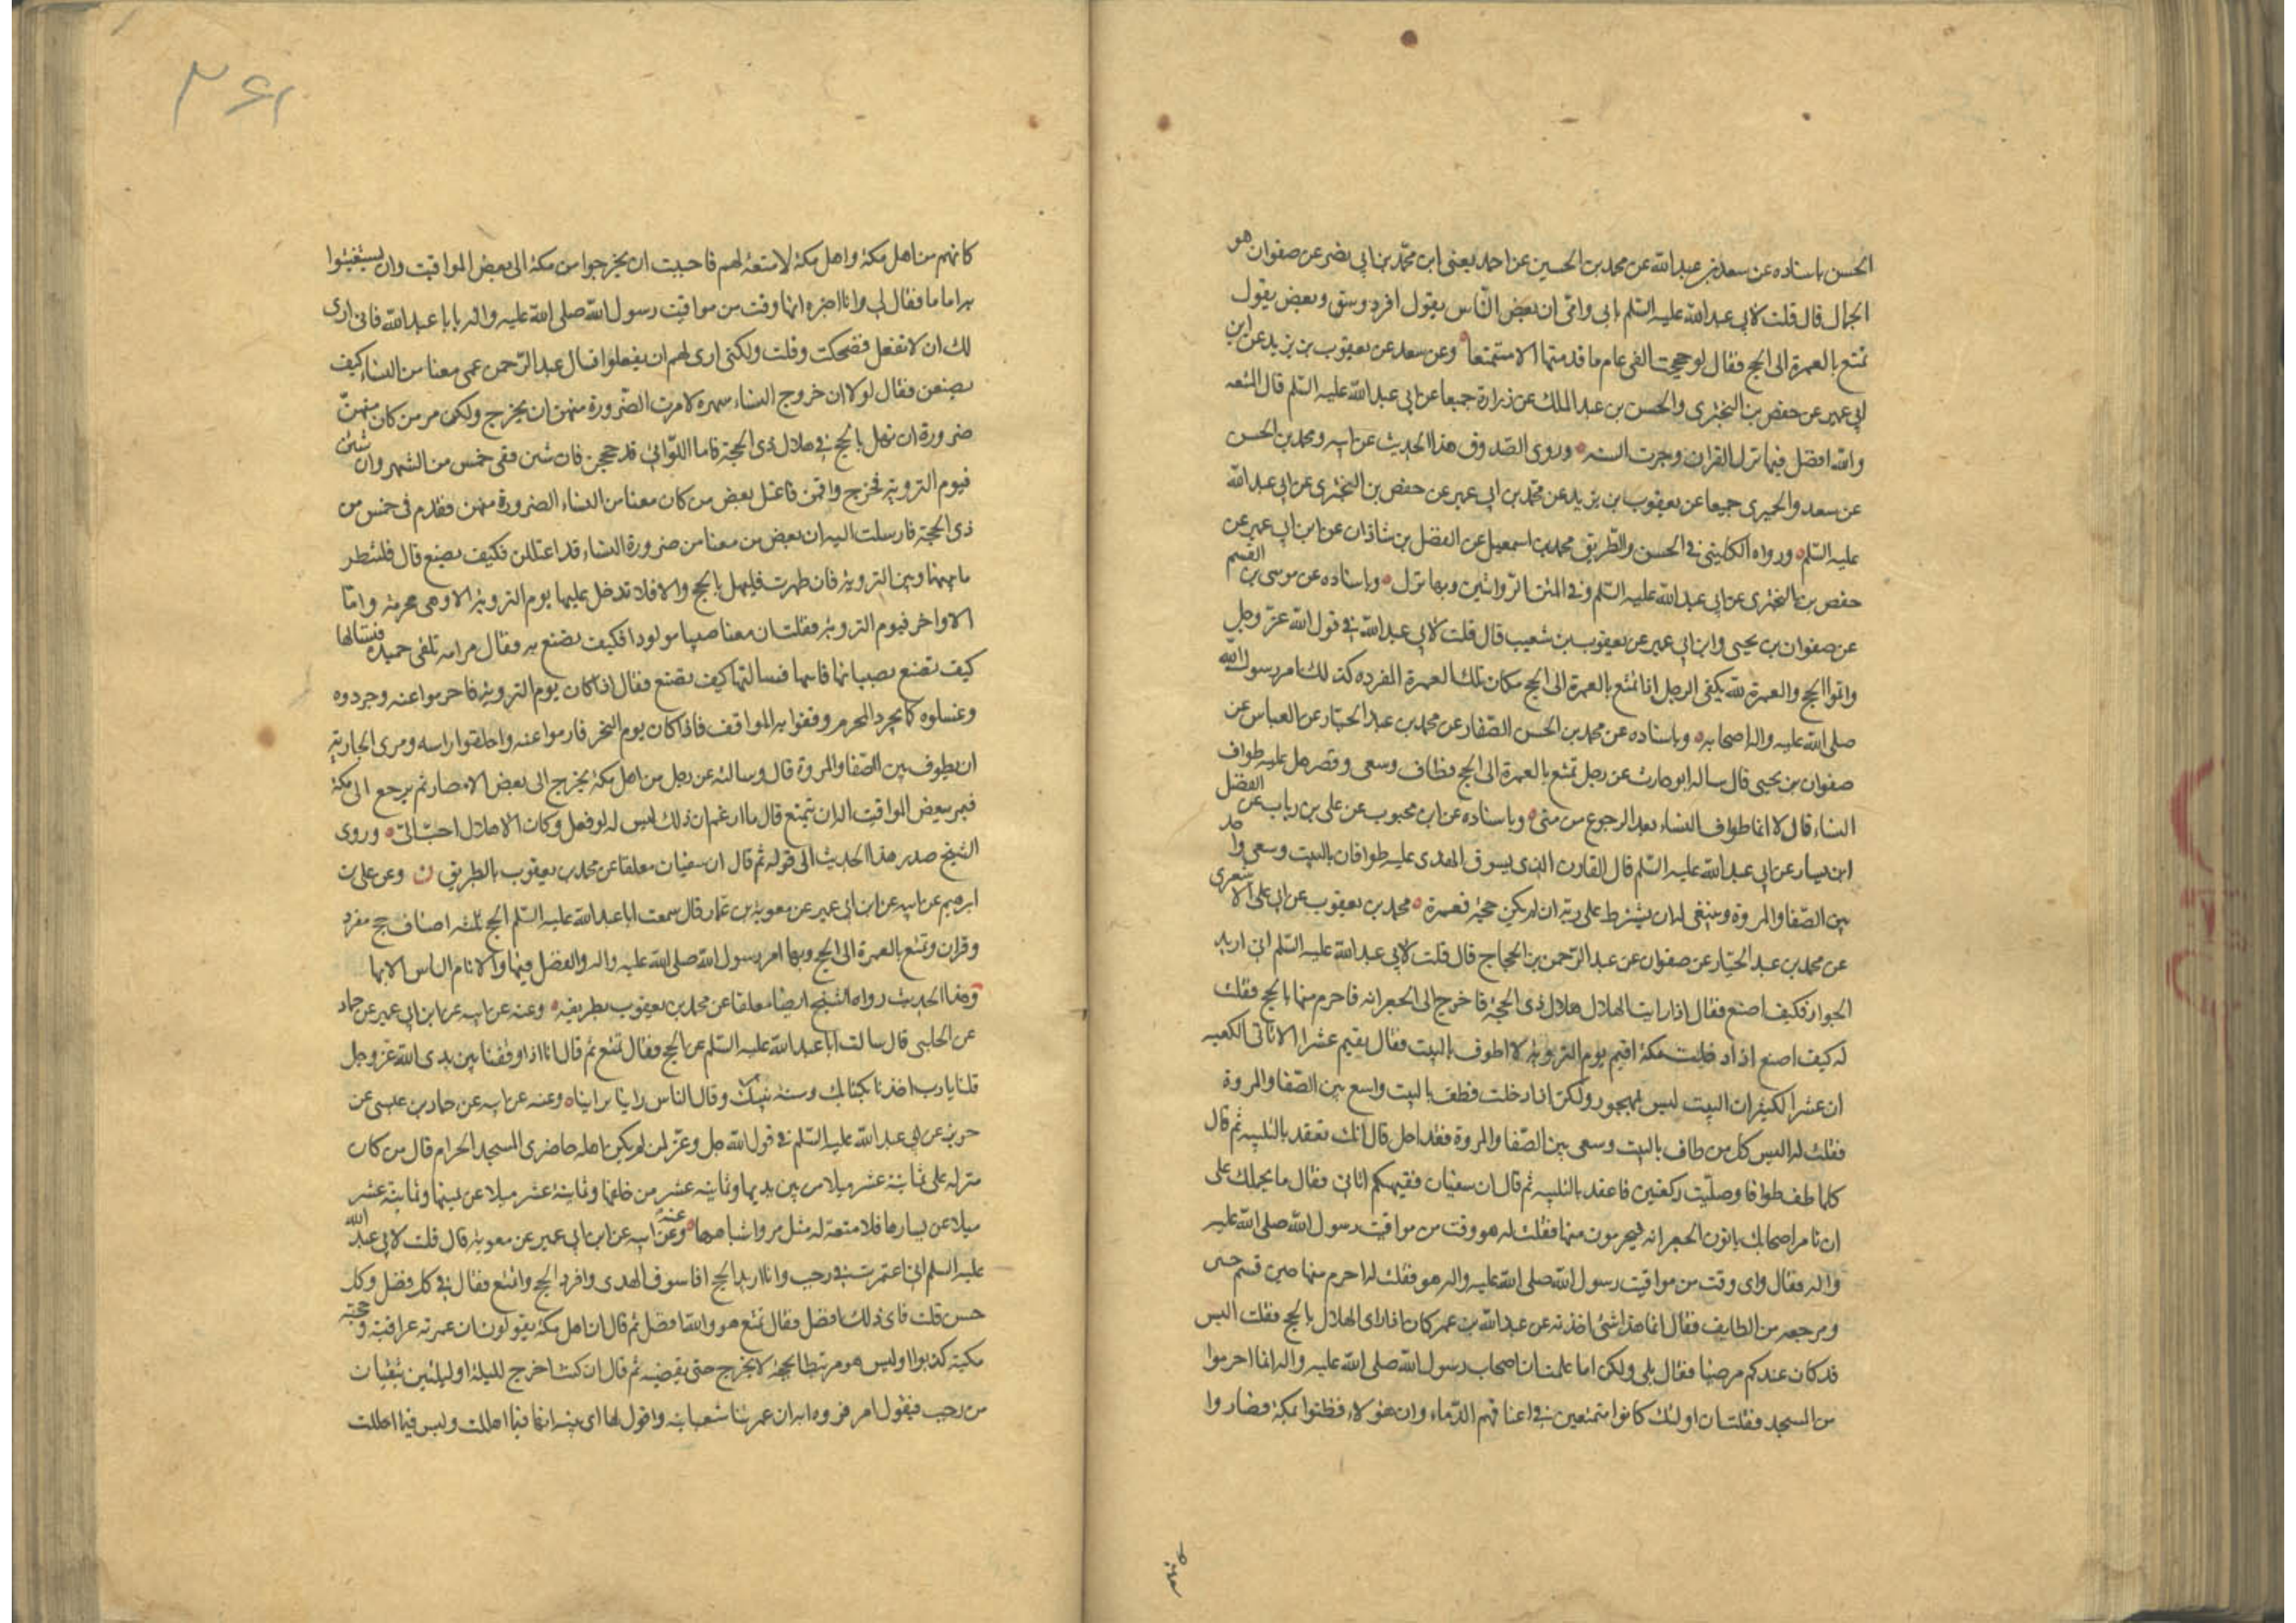 الحسن باسناده عن سعد بن عبد الله عن محمد بن الحسين عن احمد يعنى ابن محمد بن ابي نصر عن صفوان هو
الجمال قال قلت لابي عبد الله عليه السلم بابي وامى ان بعض الناس يقول افرد وسق وبعض يقول
تمتع بالعمرة الى الحج فقال لو حججت الفى عام ما قدمتها الا متمتعا وعن سعد عن يعقوب بن يزيد عن ابن
ابي عمير عن حفص بن البخترى والحسن بن عبد الملك عن زرارة جميعا عن ابي عبد الله عليه السلم قال المتعه
والله افضل فبها نزل القران وجرت السنه وروى الصدوق هذا الحديث عن ابيه ومحمد بن الحسن
عن سعد والحميرى جميعا عن يعقوب بن يزيد عن محمد بن ابي عمير عن حفص بن البخترى عن ابي عبد الله
عليه السلم ورواه الكليني في الحسن والطريق محمد بن اسمعيل عن الفضل بن شاذان عن ابن ابي عمير عن
حفص بن البخترى عن ابي عبد الله عليه السلم وفي المتن وبها نزل وباسناده عن موسى بن القسم
عن صفوان بن يحيى وابن ابي عمير عن يعقوب بن شعيب قال قلت لابي عبد الله في قول الله عز وجل
واتموا الحج والعمرة لله يكفى الرجل اذا تمتع بالعمرة الى الحج مكان تلك العمرة المفرده كذلك امر رسول الله
صلى الله عليه واله اصحابه وباسناده عن محمد بن الحسن الصفار عن محمد بن عبد الجبار عن العباس عن
صفوان بن يحيى قال ساله ابو حارث عن رجل تمتع بالعمرة الى الحج فطاف وسعى وقصر هل عليه طواف
النساء قال لا انما طواف النساء بعد الرجوع من منى وباسناده عن ابن محبوب عن على بن رباب عن الفضل
ابن يسار عن ابي عبد الله عليه السلم قال القارن الذى يسوق الهدى عليه طوافان بالبيت وسعى واحد
بين الصفا والمروة وينبغى له ان يشترط على ربه ان لم يكن حجة فعمرة محمد بن يعقوب عن ابي على الاشعرى
عن محمد بن عبد الجبار عن صفوان عن عبد الرحمن بن الحجاج قال قلت لابي عبد الله عليه السلم انى اريد
الجوار فكيف اصنع فقال اذا رايت الهلال هلال ذى الحجة فاخرج الى الجعرانه فاحرم منها بالحج فقلت
له كيف اصنع اذا دخلت مكة اقيم يوم التروية لا اطوف بالبيت فقال يقيم عشرا لا اتاتى الكعبه
ان عشرا لكثير ان البيت ليس بمهجور ولكن اذا دخلت فطف بالبيت واسع بين الصفا والمروة
فقلت له اليس كل من طاف بالبيت وسعى بين الصفا والمروة فقد احل قال انك تعقد بالتلبيه ثم قال
كلما طفت طوافا وصليت ركعتين فاعقد بالتلبيه ثم قال ان سفيان فقيهكم اتانى فقال ما يحملك على
ان تامر اصحابك ياتون الجعرانه فيحرمون منها فقلت له هو وقت من مواقيت رسول الله صلى الله عليه
واله فقال واى وقت من مواقيت رسول الله صلى الله عليه واله هو فقلت له احرم منها حين قسم
ومرجعه من الطايف فقال انما هذا شئ اخذته عن عبد الله بن عمر كان اذا راى الهلال بالحج فقلت اليس
قد كان عندكم مرضيا فقال بلى ولكن اما علمت ان اصحاب رسول الله صلى الله عليه واله انما احرموا
من المسجد فقلت ان اولئك كانوا متمتعين في اعناقهم الدماء وان هؤلاء قطنوا بمكة فصاروا
٣٦١
كانهم من اهل مكة واهل مكة لا متعة لهم فاحببت ان يخرجوا من مكة الى بعض المواقيت وان يستغبوا
به اياما فقال لى وانا اخبره انها وقت من مواقيت رسول الله صلى الله عليه واله يا ابا عبد الله فانى ارى
لك ان لا تفعل فضحكت وقلت ولكنى ارى لهم ان يفعلوا فسال عبد الرحمن عمن معنا من النساء كيف
يصنعن فقال لولا ان خروج النساء شهرة لامرت الصرورة منهن ان يخرج ولكن مر من كان منهن
صرورة ان تهل بالحج في هلال ذى الحجة فاما اللواتى قد حججن فان شئن ففى خمس من الشهر وان شئن
فيوم التروية فخرج واقمن فاعتل بعض من كان معنا من النساء الصرورة منهن فقدم في خمس من
ذى الحجة فارسلت اليه ان بعض من معنا من صرورة النساء قد اعتللن فكيف يصنع قال فلتنظر
ما بينها وبين التروية فان طهرت فليهل بالحج والا فلا تدخل عليها يوم التروية الا وهى محرمة واما
الاواخر فيوم التروية فقلت ان معنا صبيا مولودا فكيف نصنع به فقال مر امه تلقى حميدة فتسالها
كيف تصنع بصبيانها فاتتها فسالتها كيف تصنع فقال اذا كان يوم التروية فاحرموا عنه وجردوه
وغسلوه كما يجرد المحرم وقفوا به المواقف فاذا كان يوم النحر فارموا عنه واحلقوا راسه ومرى الجارية
ان يطوف بين الصفا والمروة قال وسالته عن رجل من اهل مكة يخرج الى بعض الامصار ثم يرجع الى مكة
فيمر ببعض المواقيت اله ان يتمتع قال ما ازعم ان ذلك ليس له لو فعل وكان الاهلال احب الى وروى
الشيخ صدر هذا الحديث الى قوله ثم قال ان سفيان معلقا عن محمد بن يعقوب بالطريق ن وعن على بن
ابرهيم عن ابيه عن ابن ابي عمير عن معوية بن عمار قال سمعت ابا عبد الله عليه السلم الحج ثلثه اصناف حج مفرد
وقران وتمتع بالعمرة الى الحج وبها امر رسول الله صلى الله عليه واله والفضل فيها ولا نامر الناس الا بها
وهذا الحديث رواه الشيخ ايضا معلقا عن محمد بن يعقوب بطريقه وعنه عن ابيه عن ابن ابي عمير عن حماد
عن الحلبى قال سالت ابا عبد الله عليه السلم عن الحج فقال تمتع ثم قال انا اذا وقفنا بين يدى الله عز وجل
قلنا يا رب اخذنا بكتابك وسنة نبيك وقال الناس راينا براينا وعنه عن ابيه عن حماد بن عيسى عن
حريز عن ابي عبد الله عليه السلم في قول الله جل وعز لمن لم يكن اهله حاضرى المسجد الحرام قال من كان
منزله على ثمانية عشر ميلا من بين يديها وثمانيه عشر من خلفها وثمانية عشر ميلا عن يمينها وثمانية عشر
ميلا عن يسارها فلا متعة له مثل مر واشباهها وعنه عن ابيه عن ابن ابي عمير عن معوية قال قلت لابي عبد الله
عليه السلم انى اعتمرت في رجب وانا اريد الحج افاسوق الهدى وافرد الحج واتمتع فقال في كل فضل وكل
حسن قلت فاى ذلك افضل فقال تمتع هو والله افضل ثم قال ان اهل مكة يقولون ان عمرته عراقية وحجته
مكية كذبوا اوليس هو مرتبطا بحجه لا يخرج حتى يقضيه ثم قال ان كنت اخرج لليلة او ليلتين تبقيان
من رجب فيقول ام فروه ابه ان عمرتنا شعبانيه واقول لها اى بنيه انها فيما اهللت وليس فيما احللت